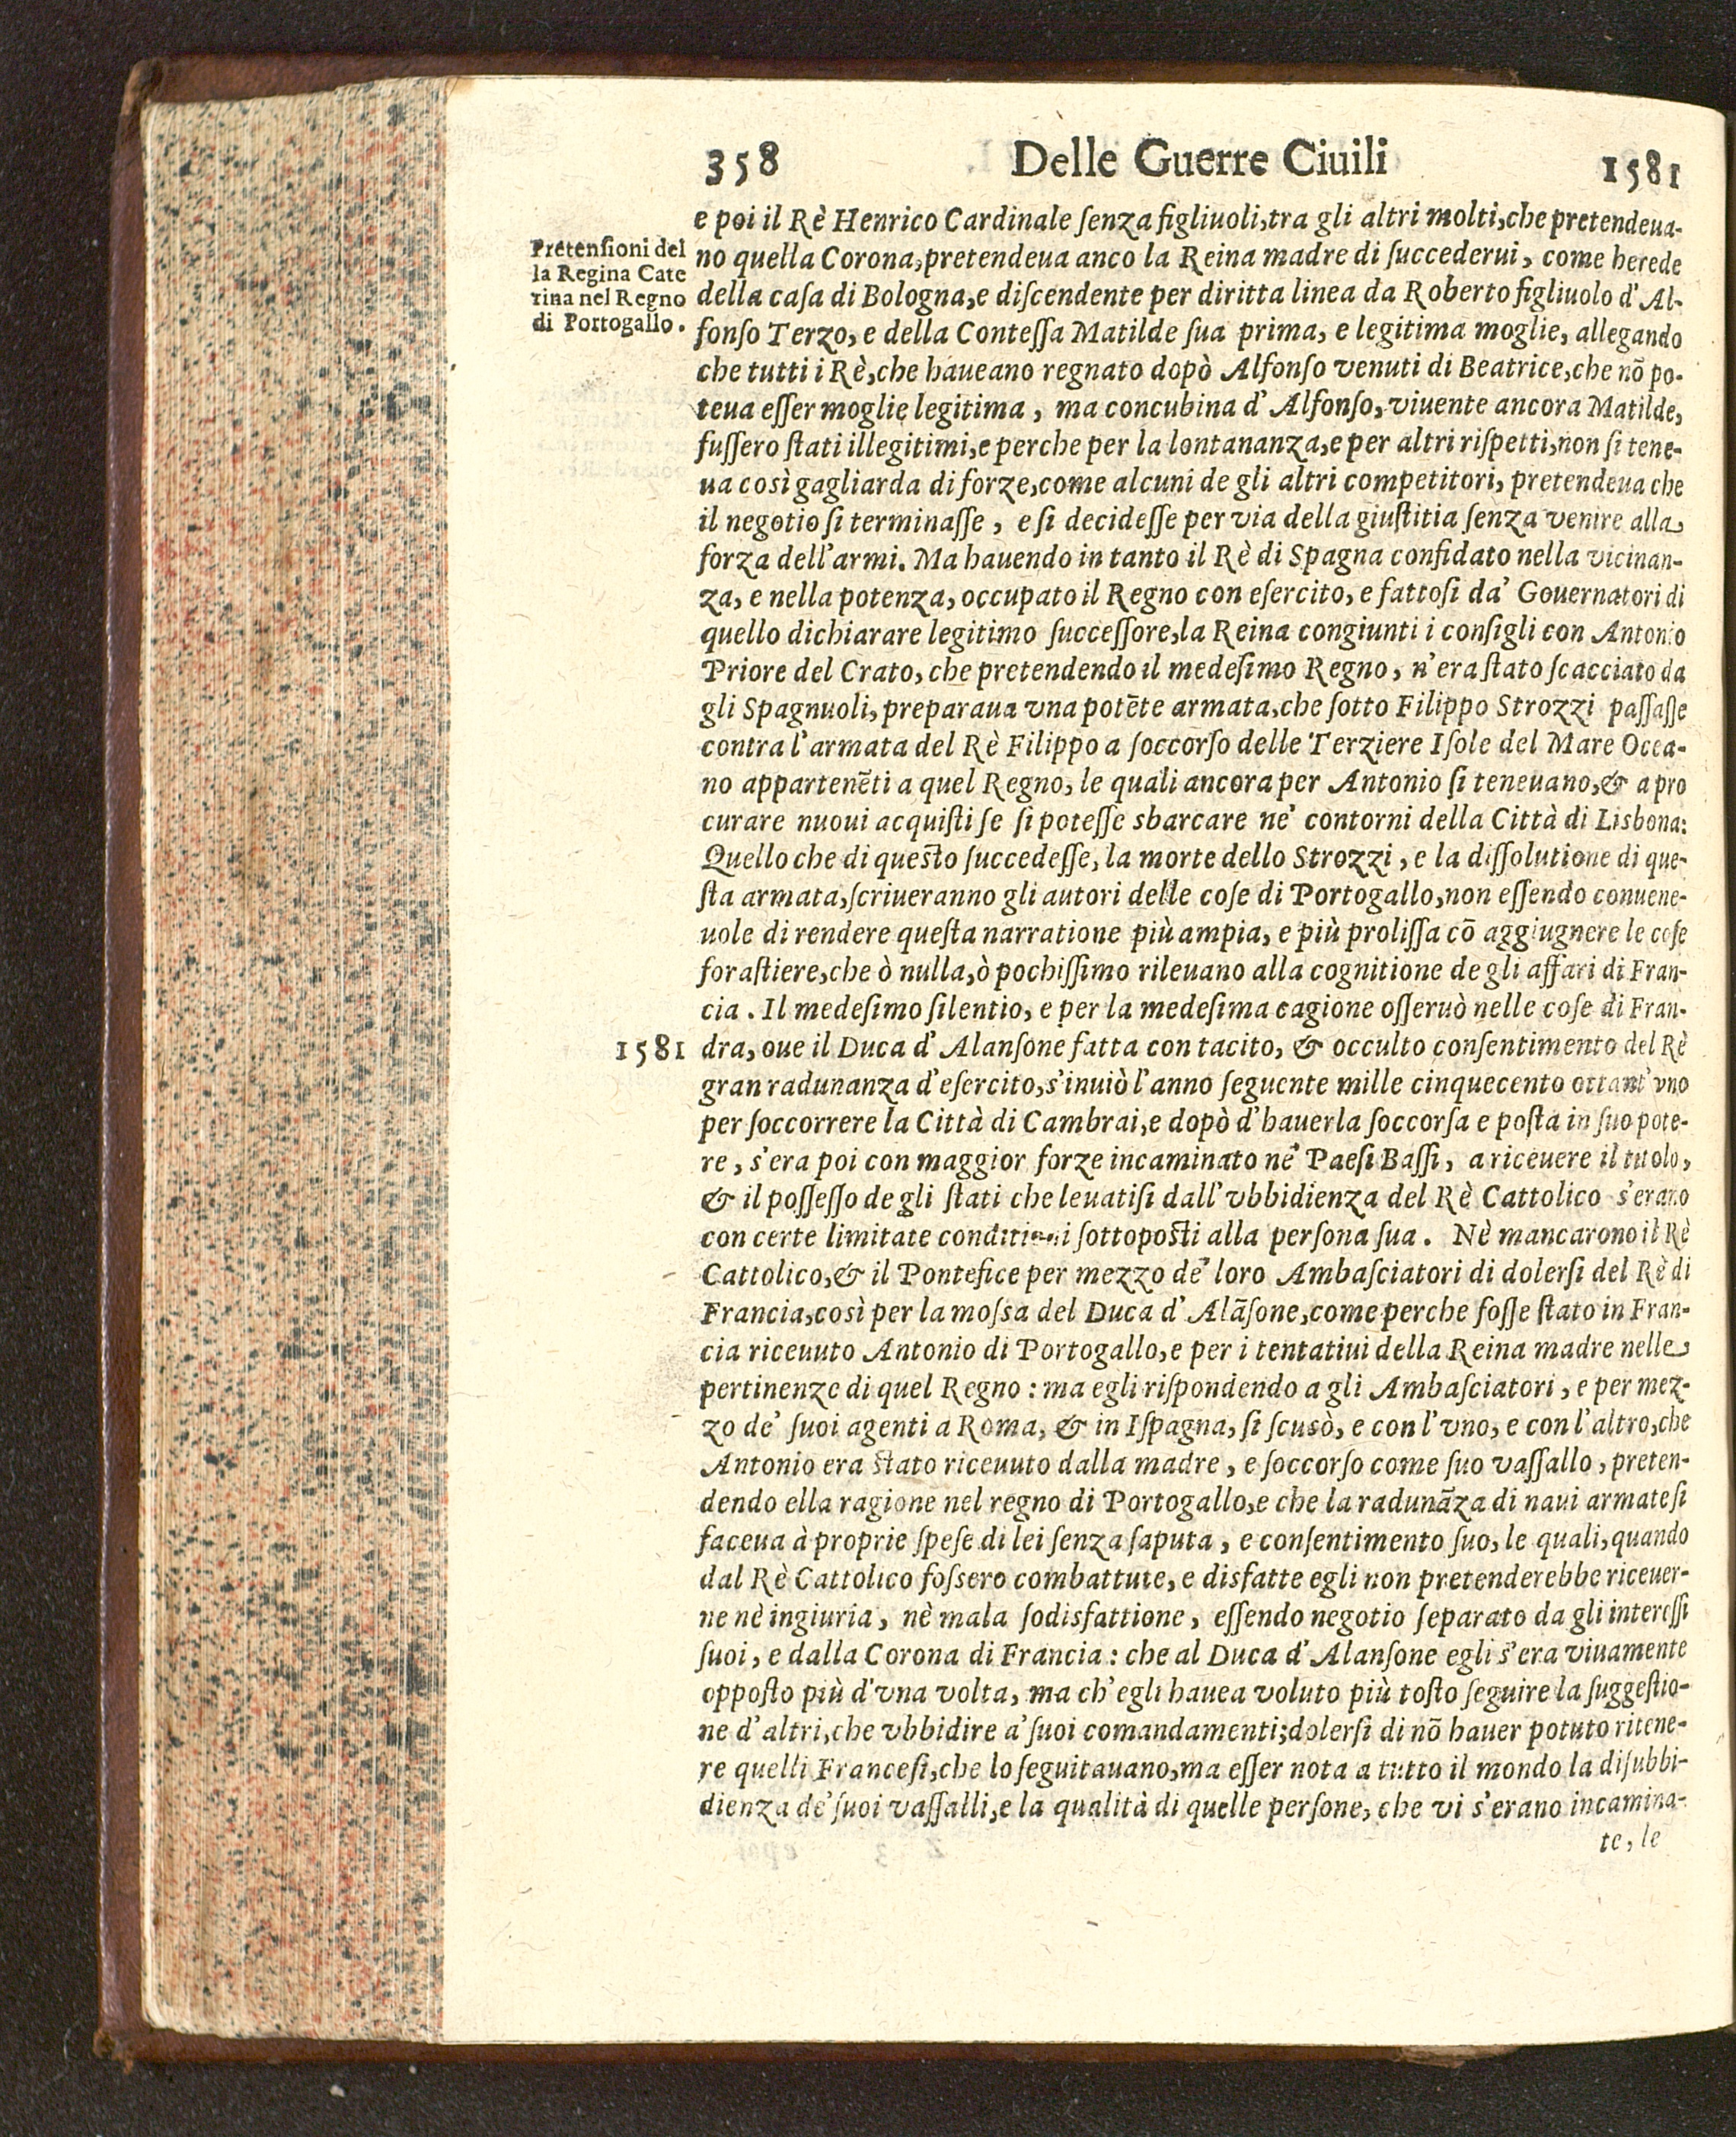 358 Delle Guerre Ciuili 1581
e poi il Rè Henrico Cardinale ſenza figliuoli, tra gli altri molti, che pretendeua-
Pretenſioni del
la Regina Cate
rina nel Regno
di Portogallo.
no quella Corona, pretendeua anco la Reina madre di ſuccederui, come herede
della caſa di Bologna, e diſcendente per diritta linea da Roberto figliuolo d'Al-
fonſo Terzo, e della Conteſſa Matilde ſua prima, e legitima moglie, allegando
che tutti i Rè, che haueano regnato dopò Alfonſo venuti di Beatrice, che nō po-
teua eſſer moglie legitima, ma concubina d'Alfonſo, viuente ancora Matilde,
fuſſero ſtati illegitimi, e perche per la lontananza, e per altri riſpetti, non ſi tene-
ua così gagliarda di forze, come alcuni de gli altri competitori, pretendeua che
il negotio ſi terminaſſe, e ſi decideſſe per via della giuſtitia ſenza venire alla
forza dell'armi. Ma hauendo in tanto il Rè di Spagna confidato nella vicinan-
za, e nella potenza, occupato il Regno con eſercito, e fattoſi da' Gouernatori di
quello dichiarare legitimo ſucceſſore, la Reina congiunti i conſigli con Antonio
Priore del Crato, che pretendendo il medeſimo Regno, n'era ſtato ſcacciato da
gli Spagnuoli, preparaua vna potēte armata, che ſotto Filippo Strozzi paſſaſſe
contra l'armata del Rè Filippo a ſoccorſo delle Terziere Iſole del Mare Ocea-
no appartenēti a quel Regno, le quali ancora per Antonio ſi teneuano, & a pro
curare nuoui acquiſti ſe ſi poteſſe sbarcare ne' contorni della Città di Lisbona:
Quello che di queſto ſuccedeſſe, la morte dello Strozzi, e la diſſolutione di que-
ſta armata, ſcriueranno gli autori delle coſe di Portogallo, non eſſendo conuene-
uole di rendere queſta narratione più ampia, e più proliſſa cō aggiugnere le coſe
foraſtiere, che ò nulla, ò pochiſſimo rileuano alla cognitione de gli affari di Fran-
cia. Il medeſimo ſilentio, e per la medeſima cagione oſſeruò nelle coſe di Fran-
1581 dra, oue il Duca d'Alanſone fatta con tacito, & occulto conſentimento del Rè
gran radunanza d'eſercito, s'inuiò l'anno ſeguente mille cinquecento ottant'vno
per ſoccorrere la Città di Cambrai, e dopò d'hauerla ſoccorſa e poſta in ſuo pote-
re, s'era poi con maggior forze incaminato ne' Paeſi Baſſi, a riceuere il titolo,
& il poſſeſſo de gli ſtati che leuatiſi dall'vbbidienza del Rè Cattolico s'erano
con certe limitate conditioni ſottopoſti alla perſona ſua. Nè mancarono il Rè
Cattolico, & il Pontefice per mezzo de' loro Ambaſciatori di dolerſi del Rè di
Francia, così per la moſſa del Duca d'Alāſone, come perche foſſe ſtato in Fran-
cia riceuuto Antonio di Portogallo, e per i tentatiui della Reina madre nelle
pertinenze di quel Regno: ma egli riſpondendo a gli Ambaſciatori, e per mez-
zo de' ſuoi agenti a Roma, & in Iſpagna, ſi ſcusò, e con l'vno, e con l'altro, che
Antonio era ſtato riceuuto dalla madre, e ſoccorſo come ſuo vaſſallo, preten-
dendo ella ragione nel regno di Portogallo, e che la radunāza di naui armate ſi
faceua à proprie ſpeſe di lei ſenza ſaputa, e conſentimento ſuo, le quali, quando
dal Rè Cattolico foſsero combattute, e disfatte egli non pretenderebbe riceuer-
ne nè ingiuria, nè mala ſodisfattione, eſſendo negotio ſeparato da gli intereſſi
ſuoi, e dalla Corona di Francia: che al Duca d'Alanſone egli s'era viuamente
oppoſto più d'vna volta, ma ch'egli hauea voluto più toſto ſeguire la ſuggeſtio-
ne d'altri, che vbbidire a' ſuoi comandamenti; dolerſi di nō hauer potuto ritene-
re quelli Franceſi, che lo ſeguitauano, ma eſſer nota a tutto il mondo la diſubbi-
dienza de' ſuoi vaſſalli, e la qualità di quelle perſone, che vi s'erano incamina-
te, le